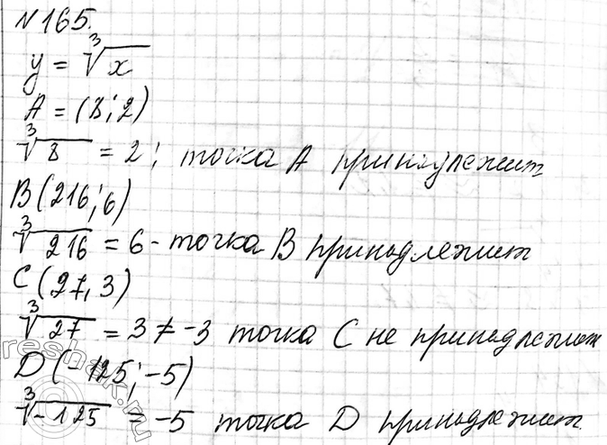 №165.
y = ∛x
A = (8; 2)
∛8 = 2; точка A принадлежит
B (216; 6)
∛216 = 6 - точка B принадлежит
C (27, 3)
∛27 = 3 ≠ -3 точка C не принадлежит
D (-125; -5)
∛-125 = -5 точка D принадлежит.
reshak.ru